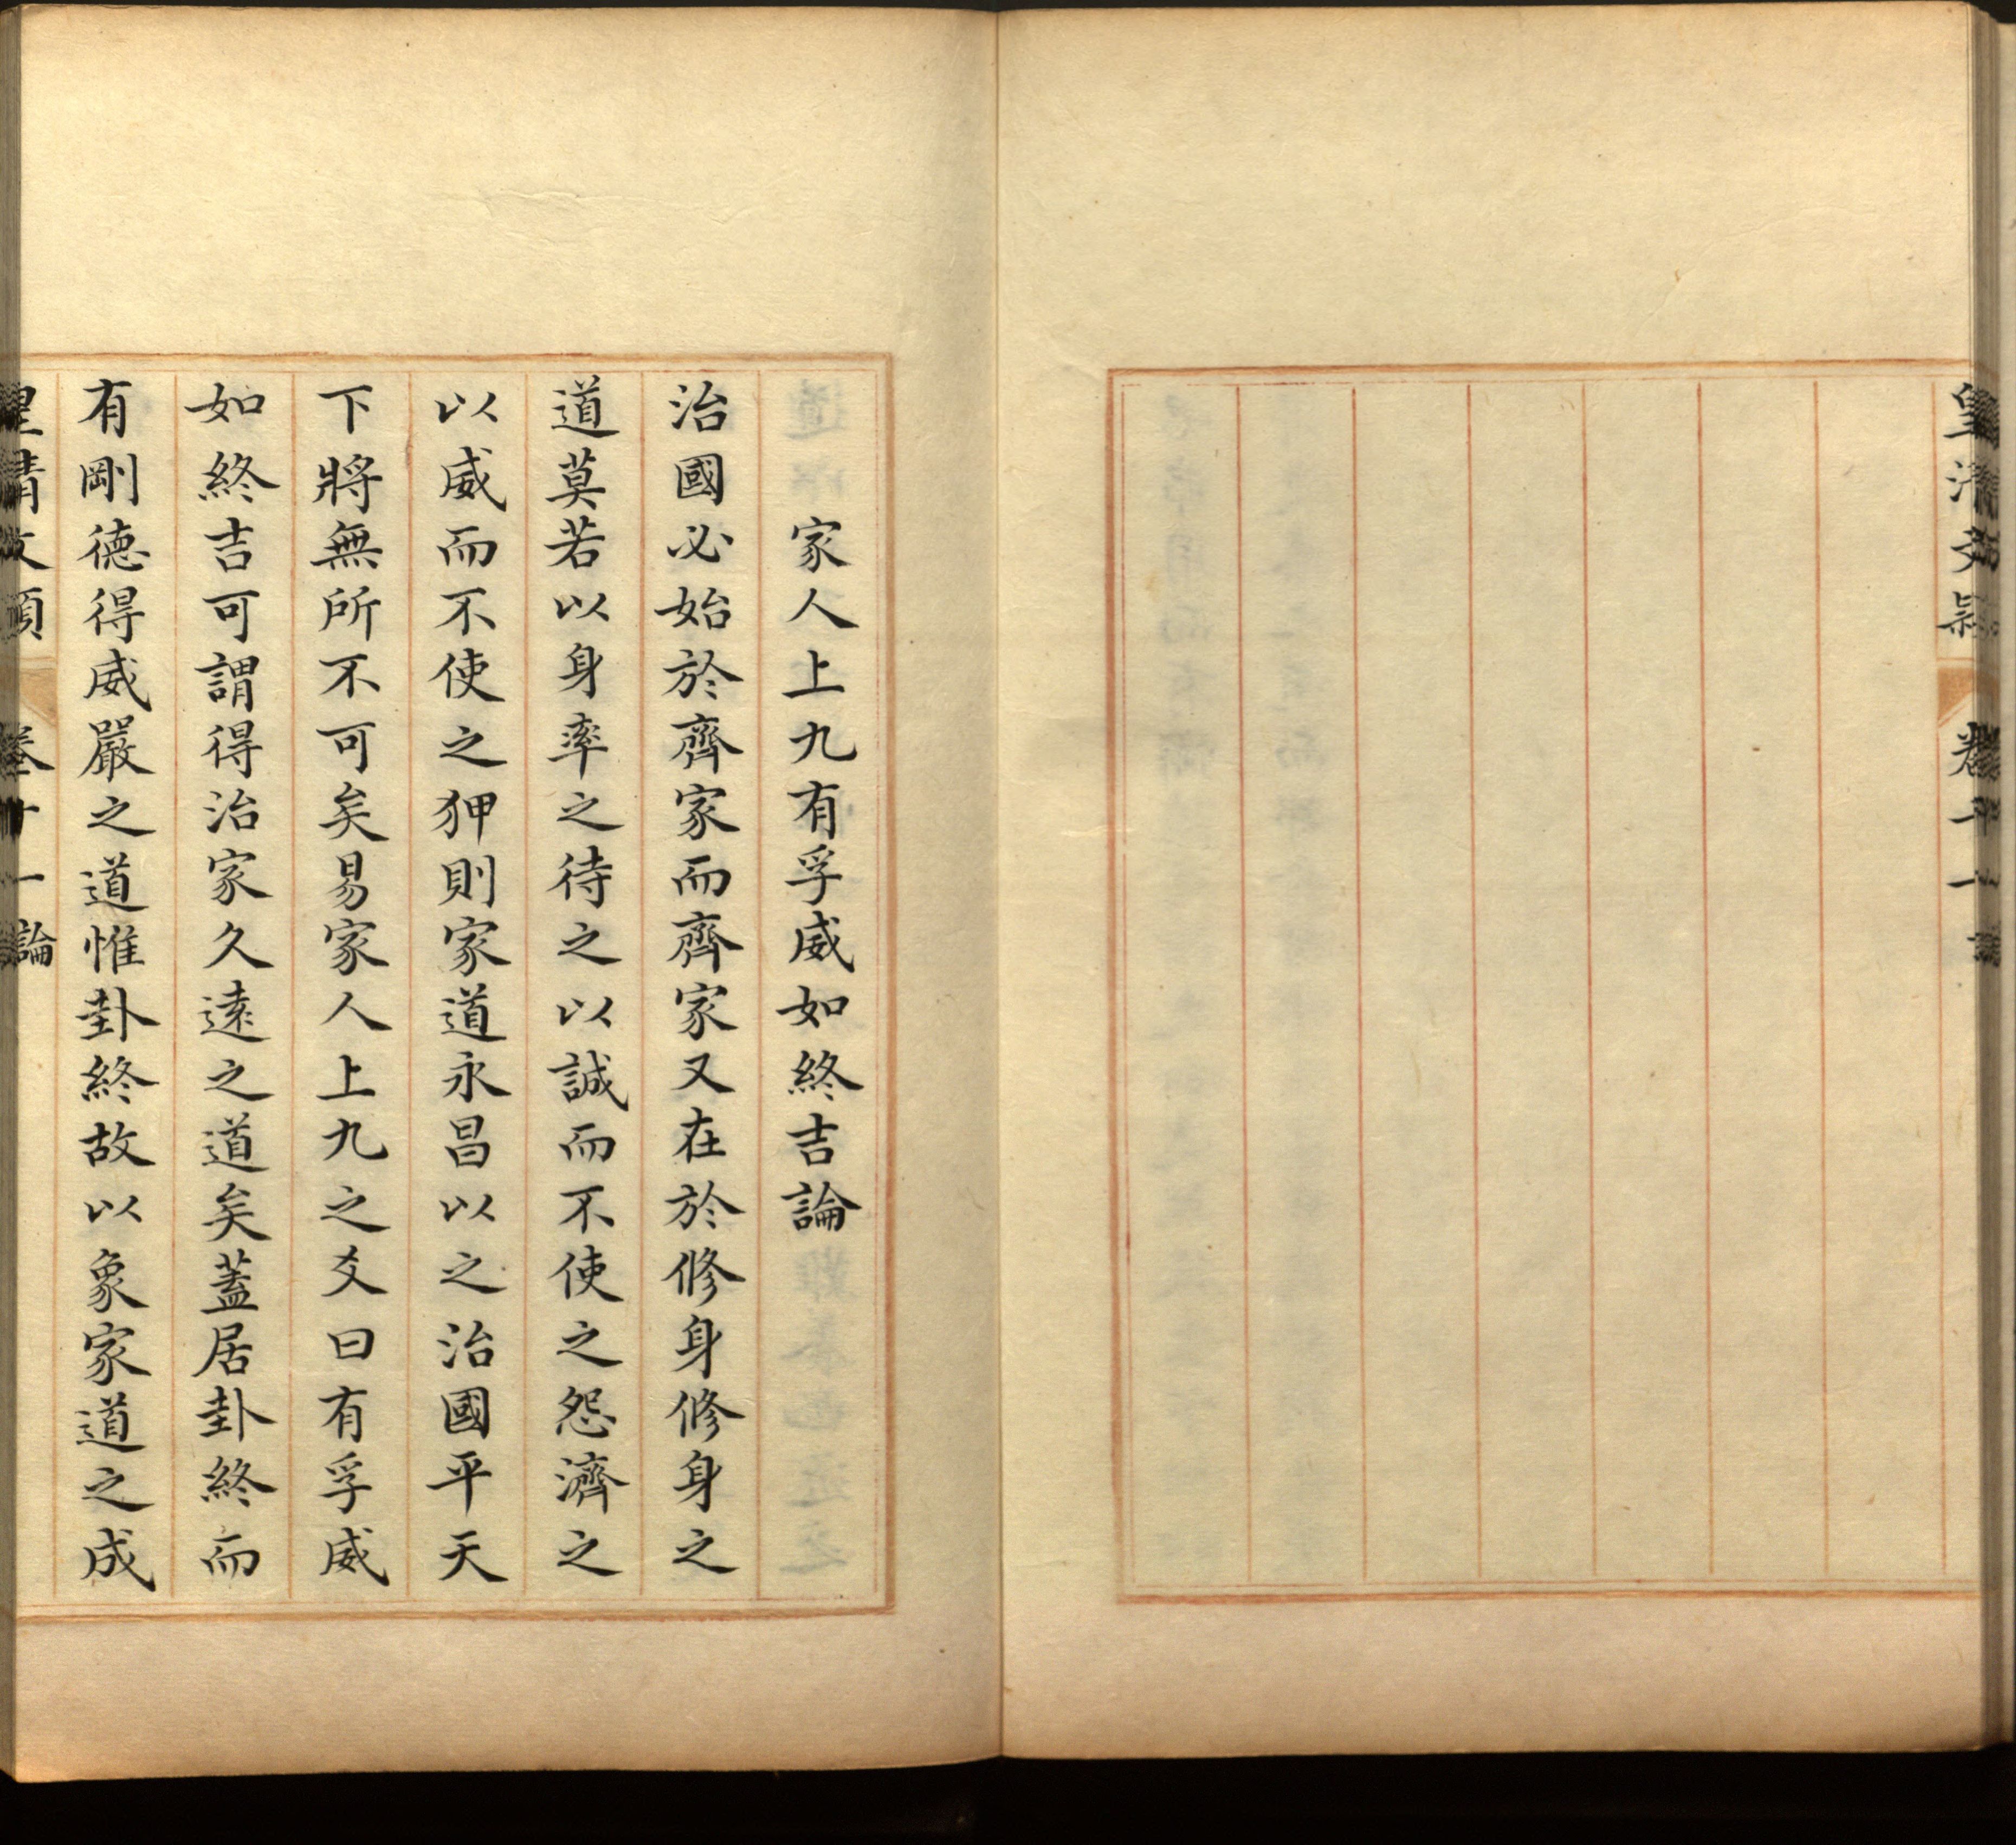 皇清文穎 卷十一
家人上九有孚威如終吉論
治國必始於齊家而齊家又在於修身修身之
道莫若以身率之待之以誠而不使之怨濟之
以威而不使之狎則家道永昌以之治國平天
下將無所不可矣易家人上九之爻曰有孚威
如終吉可謂得治家久遠之道矣蓋居卦終而
有剛德得威嚴之道惟卦終故以象家道之成
皇清文穎 卷十一 論